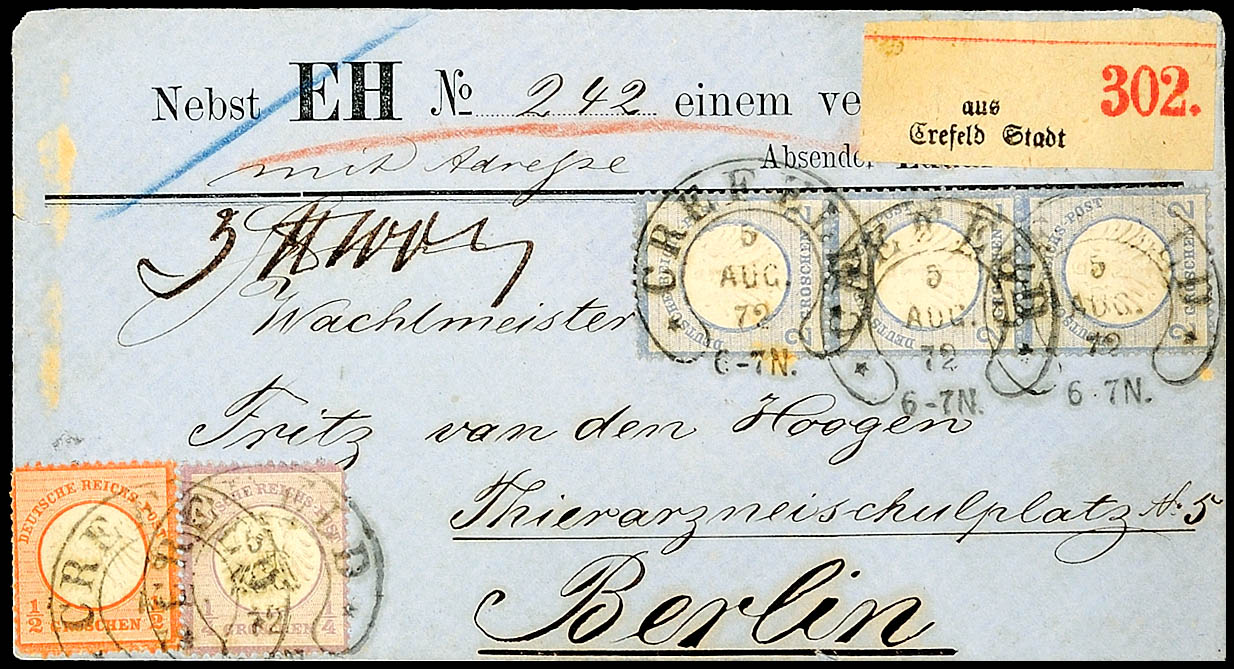 Nebst EH No 242 einem ve
302.
aus
Crefeld Stadt
mit Adresse
Absende
3
Wachtmeister
Fritz van den Hoogen
Thierarzneischulplatz No 5
Berlin
CREFELD
5
AUG.
72
6-7N.
CREFELD
5
AUG.
72
6-7N.
CREFELD
5
AUG.
72
6-7N.
2 GROSCHEN 2
DEUTSCHE REICHS-POST
1/2 GROSCHEN 1/2
DEUTSCHE REICHS-POST
1/4 GROSCHEN 1/4
CREFELD
CREFELD
5
72